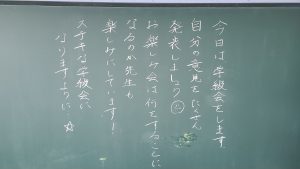 今日は学級会をします。
自分の意見をたくさん
発表しましょう
お楽しみ会は何をすることに
なるのか先生も
楽しみにしています！
ステキな学級会に
なりますように…☆